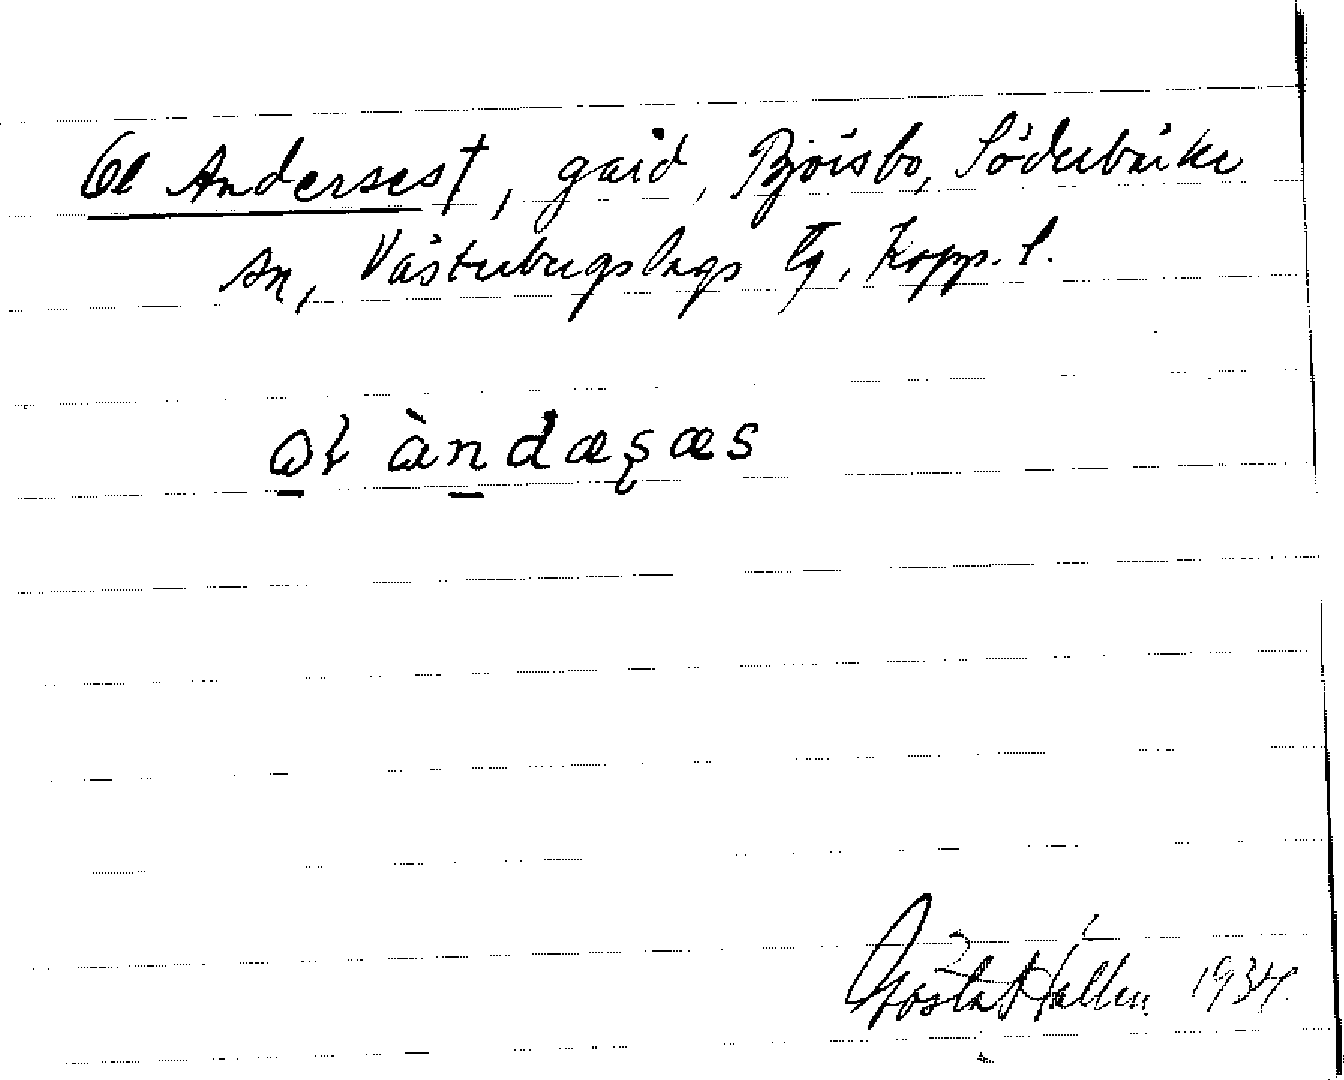 Ol Anderses†, gård, Björsbo, Söderbärke
sn, Västerbergslags tg, Kopp. l.
ɷl àndæşæs
Gösta Hallen 1934.